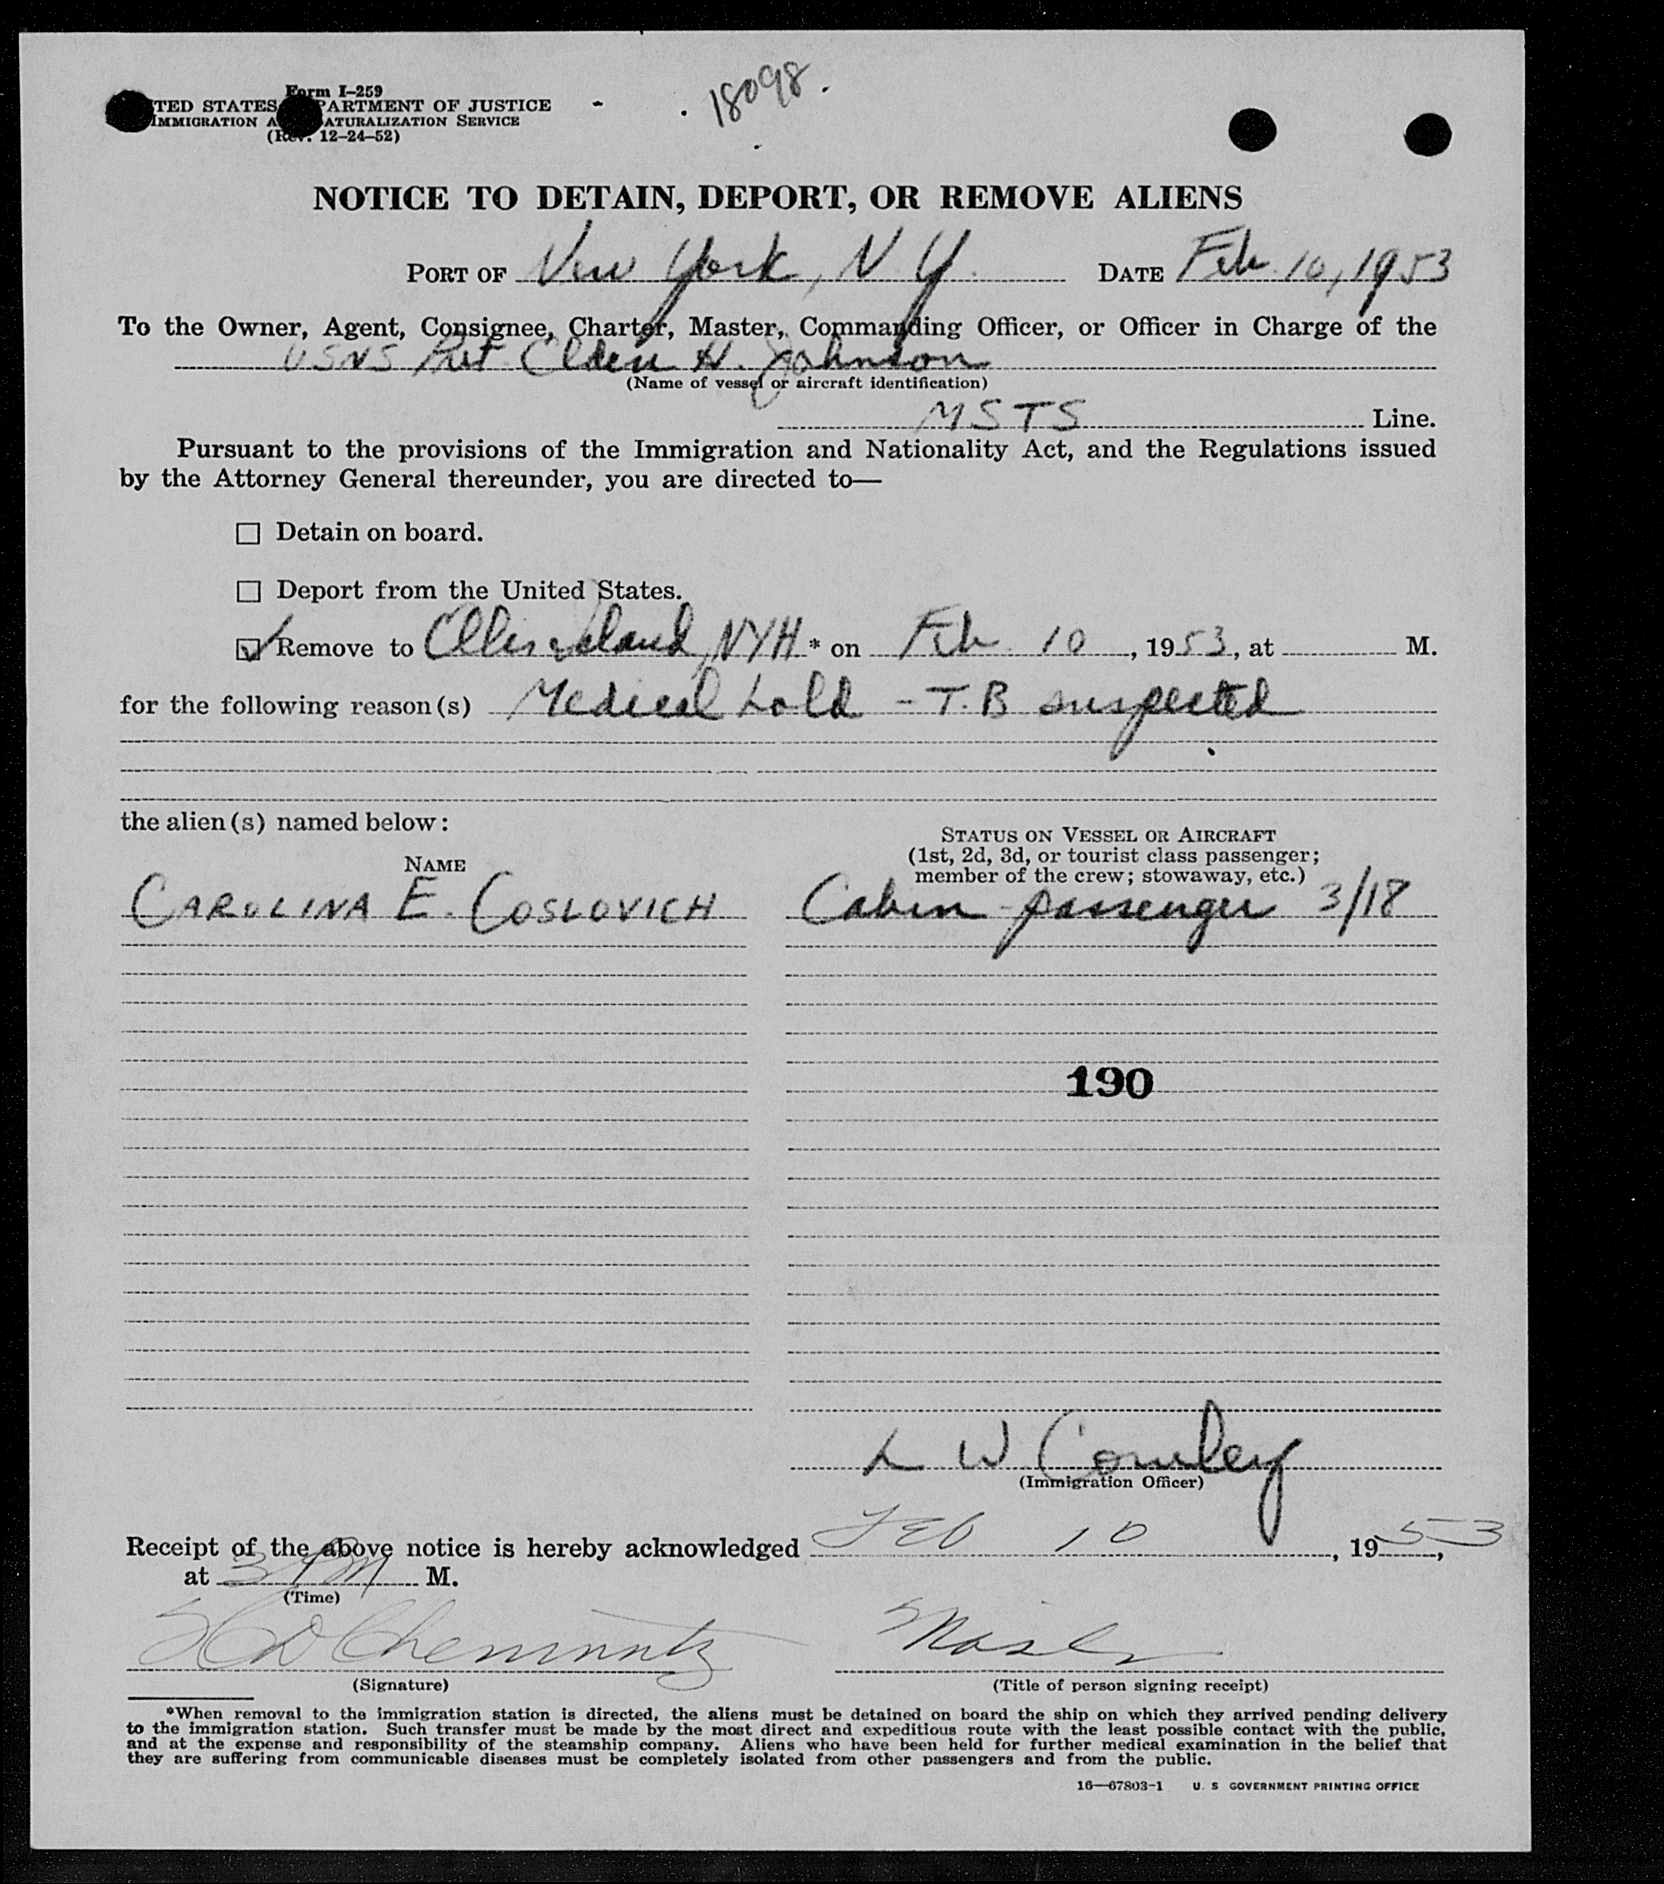 Form I-259
TED STATES PARTMENT OF JUSTICE
IMMIGRATION A ATURALIZATION SERVICE
(Rev. 12-24-52)
18098.
NOTICE TO DETAIN, DEPORT, OR REMOVE ALIENS
PORT OF New York, N.Y. DATE Feb. 10, 1953
To the Owner, Agent, Consignee, Charter, Master, Commanding Officer, or Officer in Charge of the
USNS Pvt. Elden H. Johnson
(Name of vessel or aircraft identification)
MSTS Line.
Pursuant to the provisions of the Immigration and Nationality Act, and the Regulations issued
by the Attorney General thereunder, you are directed to—
☐ Detain on board.
☐ Deport from the United States.
☑ Remove to Ellis Island, NYH * on Feb. 10, 1953, at M.
for the following reason(s) Medical hold - T.B suspected
the alien(s) named below:
NAME
STATUS ON VESSEL OR AIRCRAFT
(1st, 2d, 3d, or tourist class passenger;
member of the crew; stowaway, etc.)
CAROLINA E. COSLOVICH Cabin passenger 3/18
190
L W Cowley
(Immigration Officer)
Receipt of the above notice is hereby acknowledged Feb 10, 1953,
at 3 PM M.
(Time)
(Signature)
(Title of person signing receipt)
*When removal to the immigration station is directed, the aliens must be detained on board the ship on which they arrived pending delivery
to the immigration station. Such transfer must be made by the most direct and expeditious route with the least possible contact with the public,
and at the expense and responsibility of the steamship company. Aliens who have been held for further medical examination in the belief that
they are suffering from communicable diseases must be completely isolated from other passengers and from the public.
16—67803-1 U. S GOVERNMENT PRINTING OFFICE